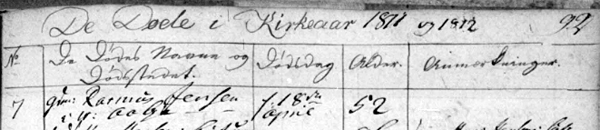 De Døde i Kirkeaar 1811 og 1812 92
No De Dødes Navne og Dødsstedet. Dødsdag Alder. Anmærkninger.
7 Rasmus Jensen 18de April 52